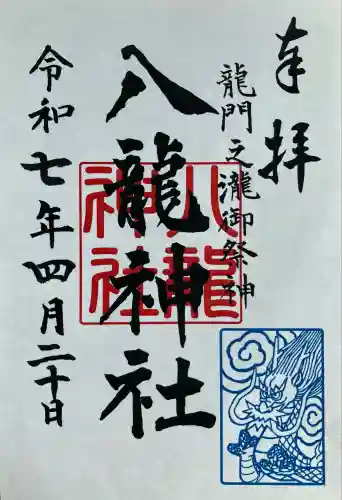 奉拝
龍門之瀧御祭神
八龍神社
八龍神社
令和七年四月二十日